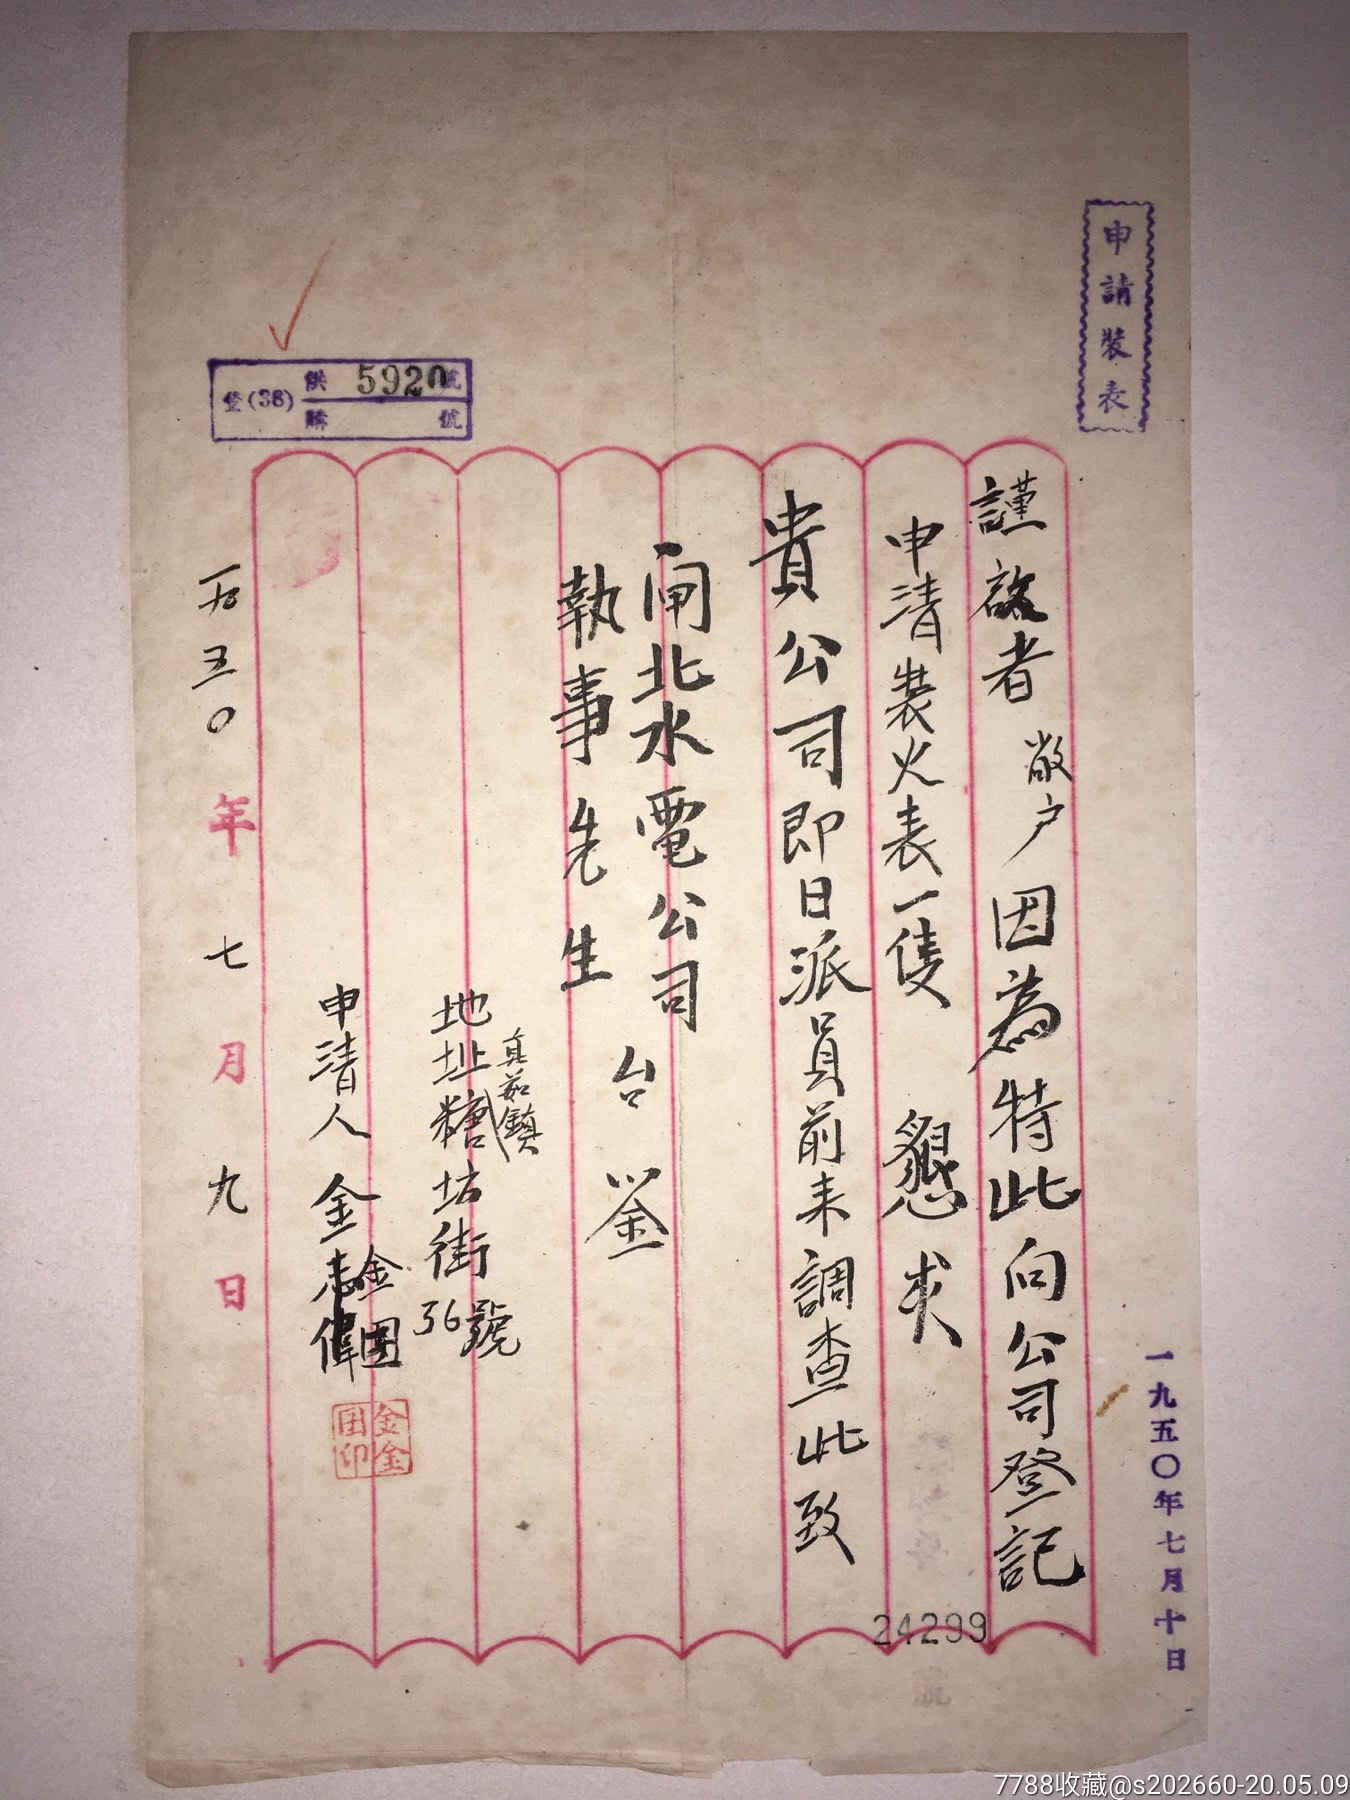 申請裝表
謹啟者 敝户因為特此向公司登記
申清裝火表一隻 懇求
貴公司即日派員前来調查此致
閘北水電公司 台鉴
執事先生
真茹鎮
地址糖坊街36號
金团
申清人 金志偉
金金团印
一九五〇年七月九日
登(38) 供 5920 號
購 號
一九五〇年七月十日
24299
7788收藏@s202660-20.05.09